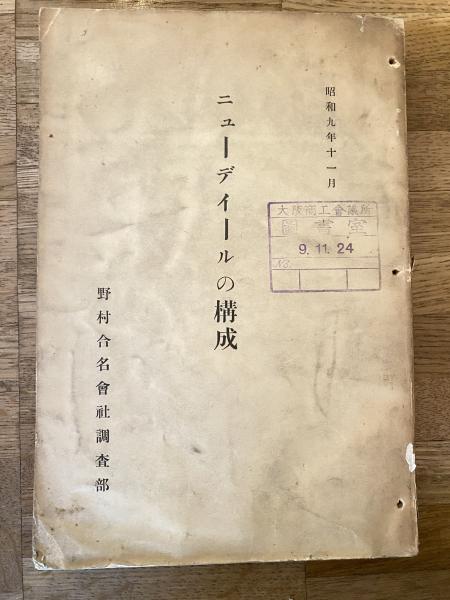 昭和九年十一月
ニューデイールの構成
野村合名會社調査部
大阪商工會議所
圖書室
9.11.24
No.